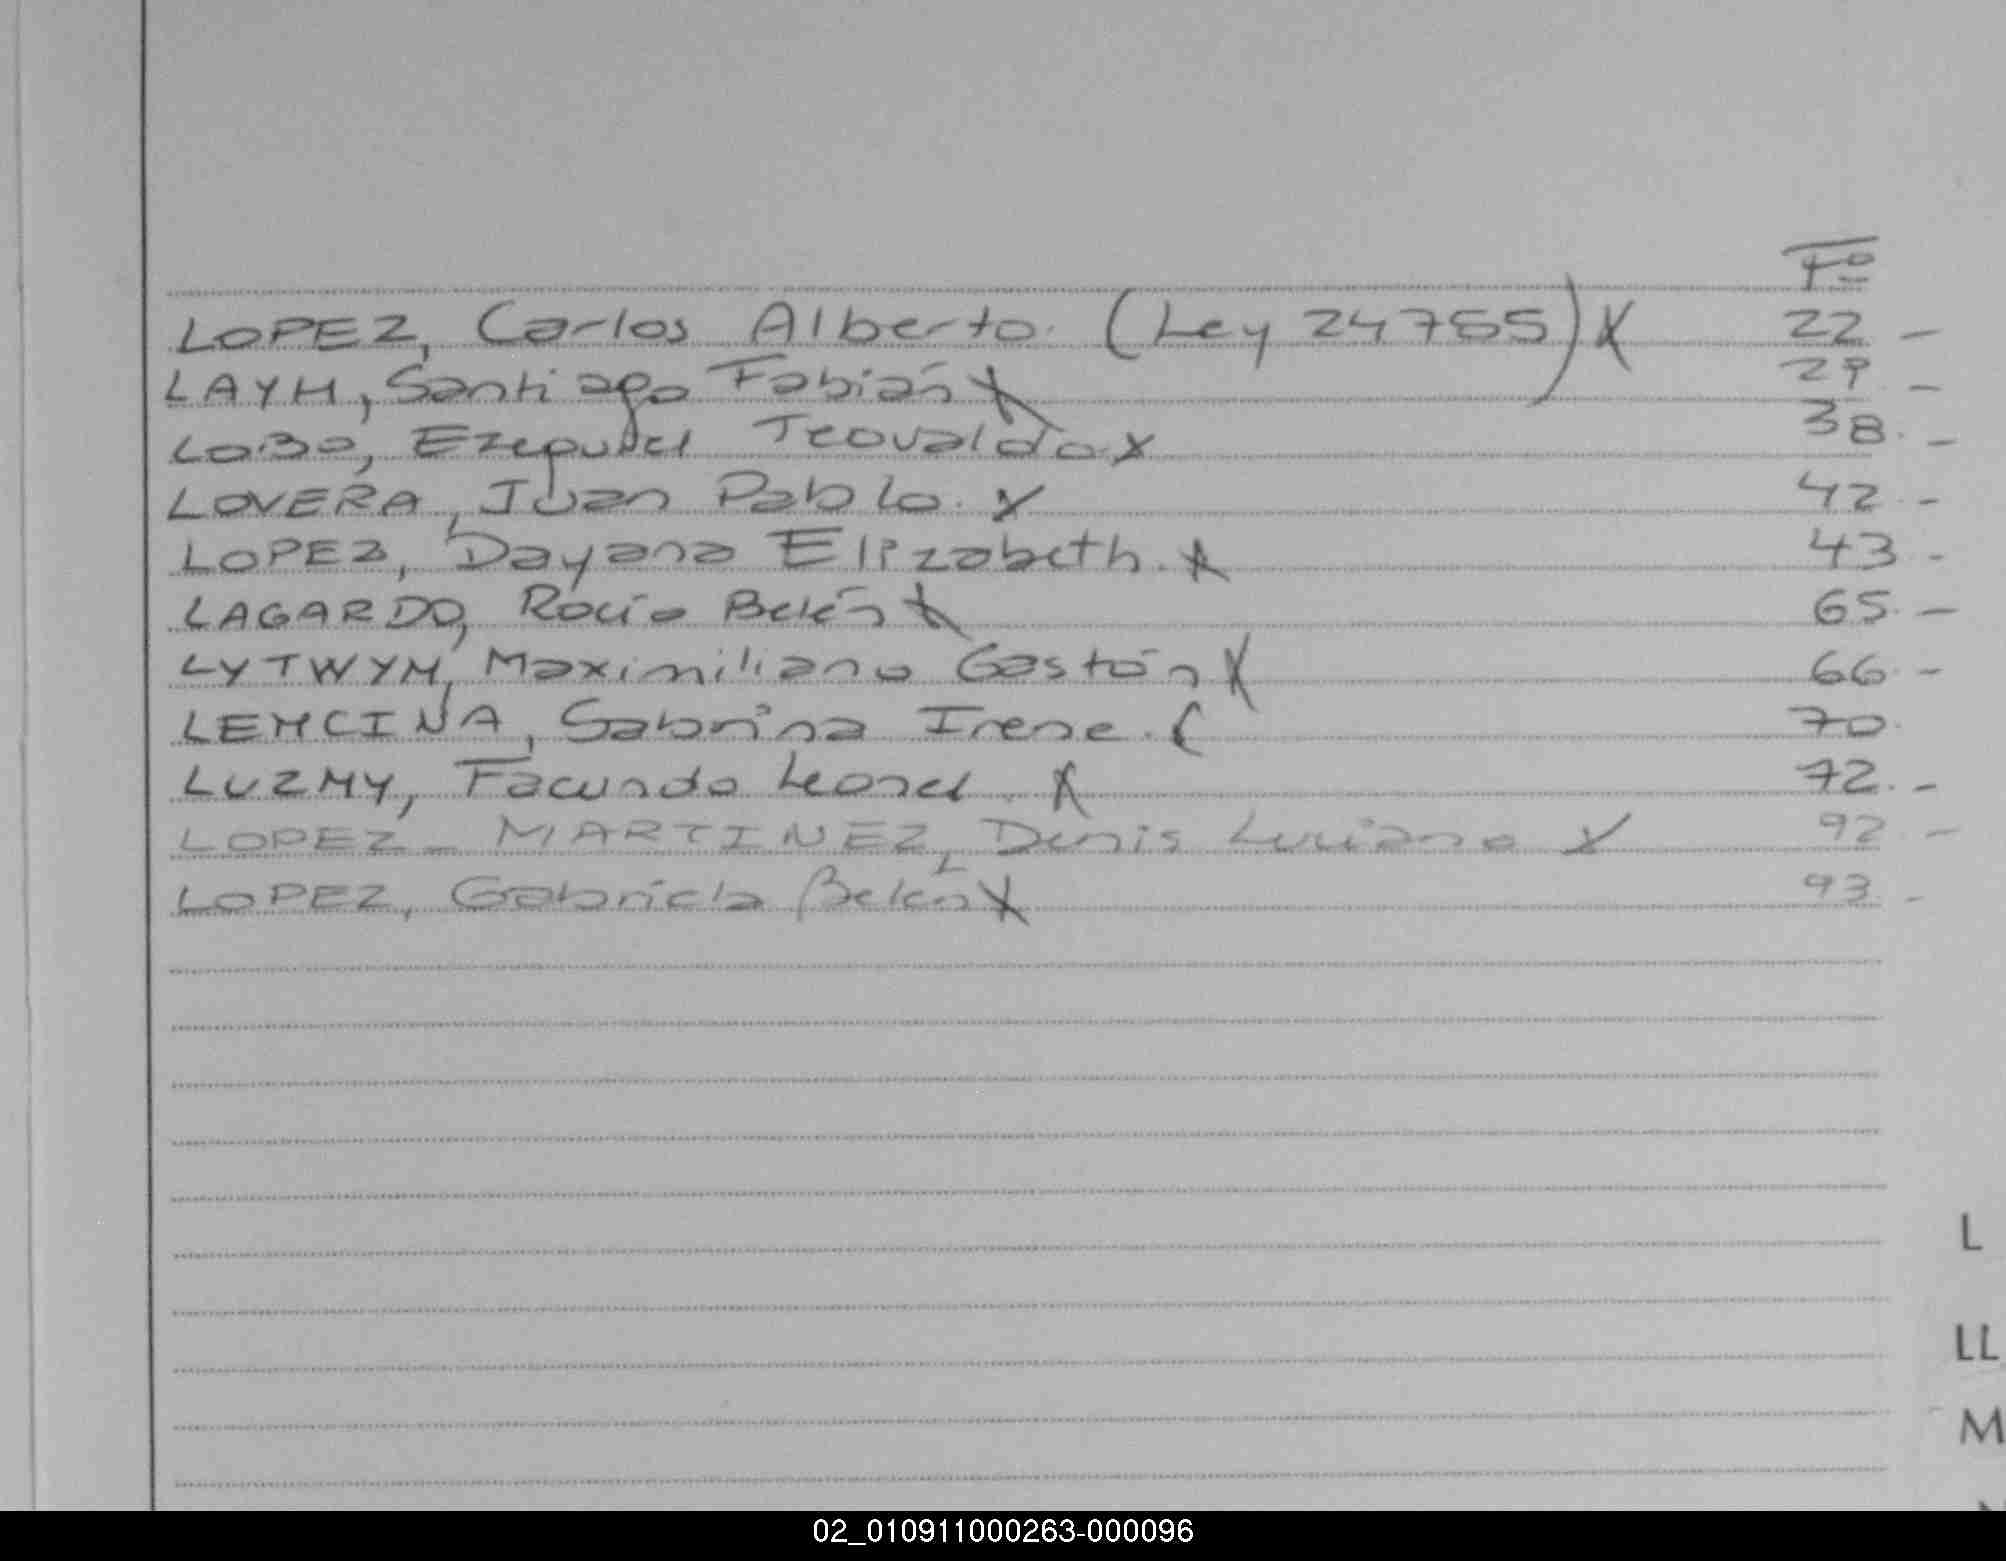 Fº
LOPEZ, Carlos Alberto. (Ley 24755) X 22 -
LAYH, Santiago Fabián X 29 -
LOBO, Ezequiel Teovaldo X 38. -
LOVERA, Juan Pablo. X 42 -
LOPEZ, Dayana Elizabeth. X 43 -
LAGARDO, Rocío Belén X 65. -
LYTWYM, Maximiliano Gastón X 66 -
LEMCINA, Sabrina Irene. 70
LUZMY, Facundo Leonel. X 72. -
LOPEZ - MARTINEZ, Denis Luciano X 92 -
LOPEZ, Gabriela Belén X 93 -
L
LL
M
02_010911000263-000096